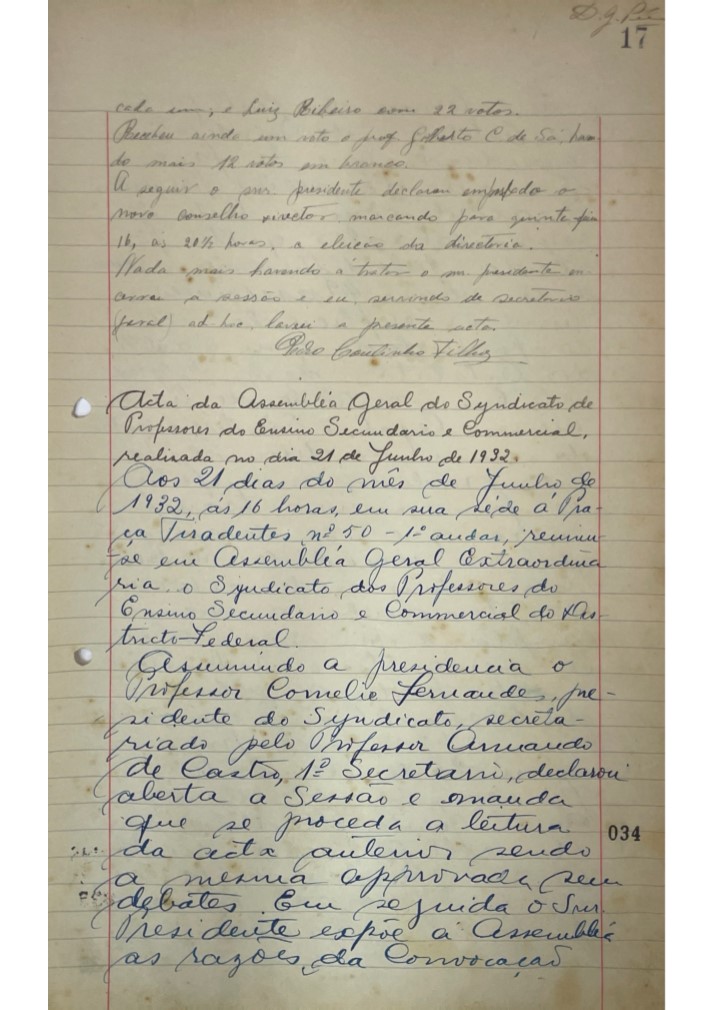 D. G.
17
cada um, e Luiz Ribeiro com 22 votos.
Recebeu ainda um voto o prof. C de Sá, haven-
do mais 12 votos em branco.
A seguir o snr presidente declarou empossado o
novo conselho director, marcando para quinta-feira
16, ás 20½ horas, a eleição da directoria.
Nada mais havendo a tratar o sr. presidente en-
cerrou a sessão e eu, servindo de secretario
(geral) ad hoc, lavrei a presente acta.
Pedro Coutinho Filho
Acta da Assembléa Geral do Syndicato de
Professores do Ensino Secundario e Commercial,
realisada no dia 21 de Junho de 1932.
Aos 21 dias do mês de Junho de
1932, ás 16 horas, em sua séde á Pra-
ça Tiradentes, nº 50 - 1º andar, reuniu-
se em Assembléa Geral Extraordina
ria o Syndicato dos Professores do
Ensino Secundario e Commercial do Dis-
tricto-Federal.
Assumindo a presidencia o
Professor Cornelio Fernandes, pre-
sidente do Syndicato, secreta-
riado pelo Professor Armando
de Castro, 1º Secretario, declarou
aberta a Sessão e manda
que se proceda a leitura
034
da acta anterior sendo
a mesma approvada sem
debates. Em seguida o Snr.
Presidente expõe a Assembléa
as razões da Convocação